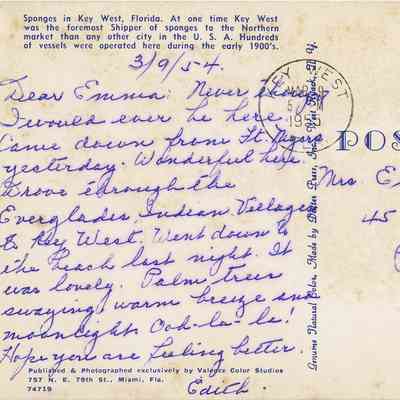 Sponges in Key West, Florida. At one time Key West
was the foremost Shipper of sponges to the Northern
market than any other city in the U. S. A. Hundreds
of vessels were operated here during the early 1900's.
3/9/54.
Dear Emma: Never thought
I would ever be here.
Came down from Ft. Myers
yesterday. Wonderful here.
Drove through the
Everglades, Indian Villages
& Key West. Went down to
the beach last night. It
was lovely. Palm trees
swaying, warm breeze and
moonlight. Ooh-la-la!
Hope you are feeling better.
Edith.
Published & Photographed exclusively by Valence Color Studios
757 N. E. 79th St., Miami, Fla.
74719
KEY WEST
MAR
5
195
Genuine Natural Color, Made by Dexter Press, Inc., West Nyack, N. Y.
POS
Mrs. E
45